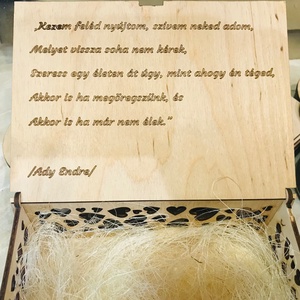 „Kezem feléd nyújtom, szívem neked adom,
Melyet vissza soha nem kérek,
Szeress egy életen át úgy, mint ahogy én téged,
Akkor is ha megöregszünk, és
Akkor is ha már nem élek.”
/Ady Endre/